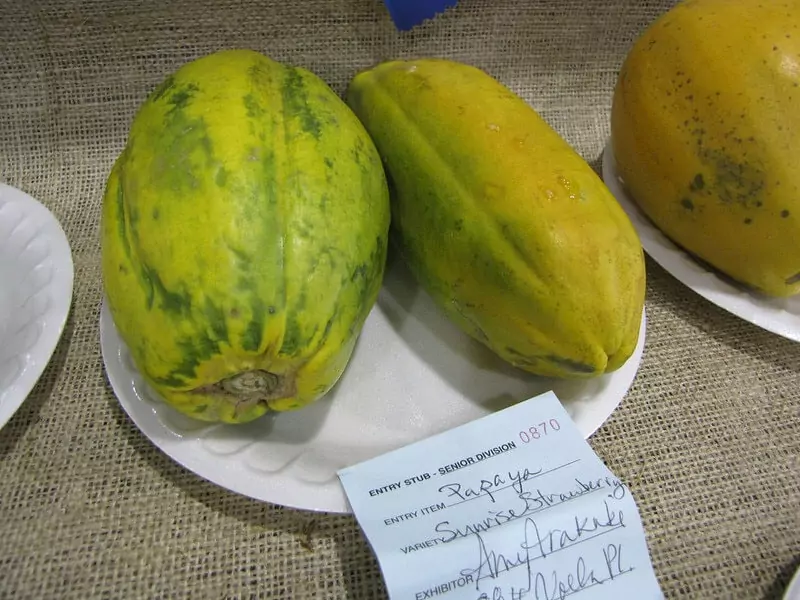 ENTRY STUB - SENIOR DIVISION 0870
ENTRY ITEM Papaya
VARIETY Sunrise Strawberry
EXHIBITOR Amy Arakaki
Noela Pl.